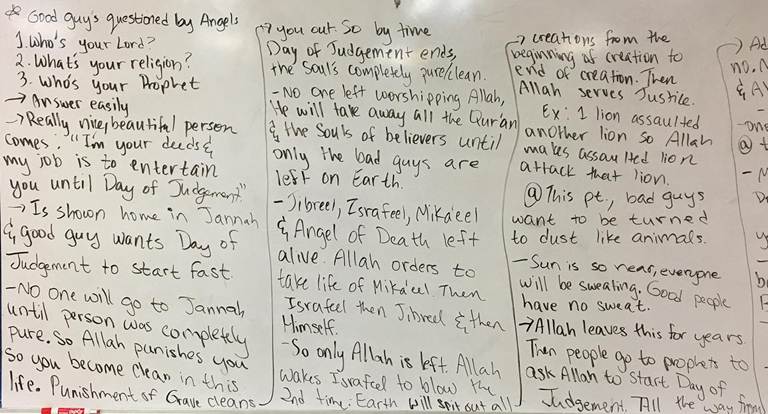 * Good guy's questioned by Angels
1. Who's your Lord?
2. What's your religion?
3. Who's your Prophet
→ Answer easily
→ Really nice, beautiful person
comes. "I'm your deeds &
my job is to entertain
you until Day of Judgement."
→ Is shown home in Jannah
& good guy wants Day of
Judgement to start fast.
- No one will go to Jannah
until person was completely
pure. So Allah punishes you
So you become clean in this
life. Punishment of Grave cleans
→ you out. So by time
Day of Judgement ends,
the soul's completely pure/clean.
- No one left worshipping Allah,
He will take away all the Qur'an
& the Souls of believers until
only the bad guys are
left on Earth.
- Jibreel, Israfeel, Mika'eel
& Angel of Death left
alive. Allah orders to
take life of Mika'eel Then
Israfeel then Jibreel & then
Himself.
- So only Allah is left. Allah
wakes Israfeel to blow the
2nd time. Earth will spit out all
→ creations from the
beginning of creation to
end of creation. Then
Allah serves Justice.
Ex: 1 lion assaulted
another lion so Allah
makes assaulted lion
attack that lion.
@ This pt., bad guys
want to be turned
to dust like animals.
- Sun is so near, everyone
will be sweating. Good people
have no sweat.
→ Allah leaves this for years.
Then people go to prophets to
ask Allah to Start Day of
Judgement. All the way from
→ Ad
no. N
& A
- ons
@ t
- M
D
y
-
b